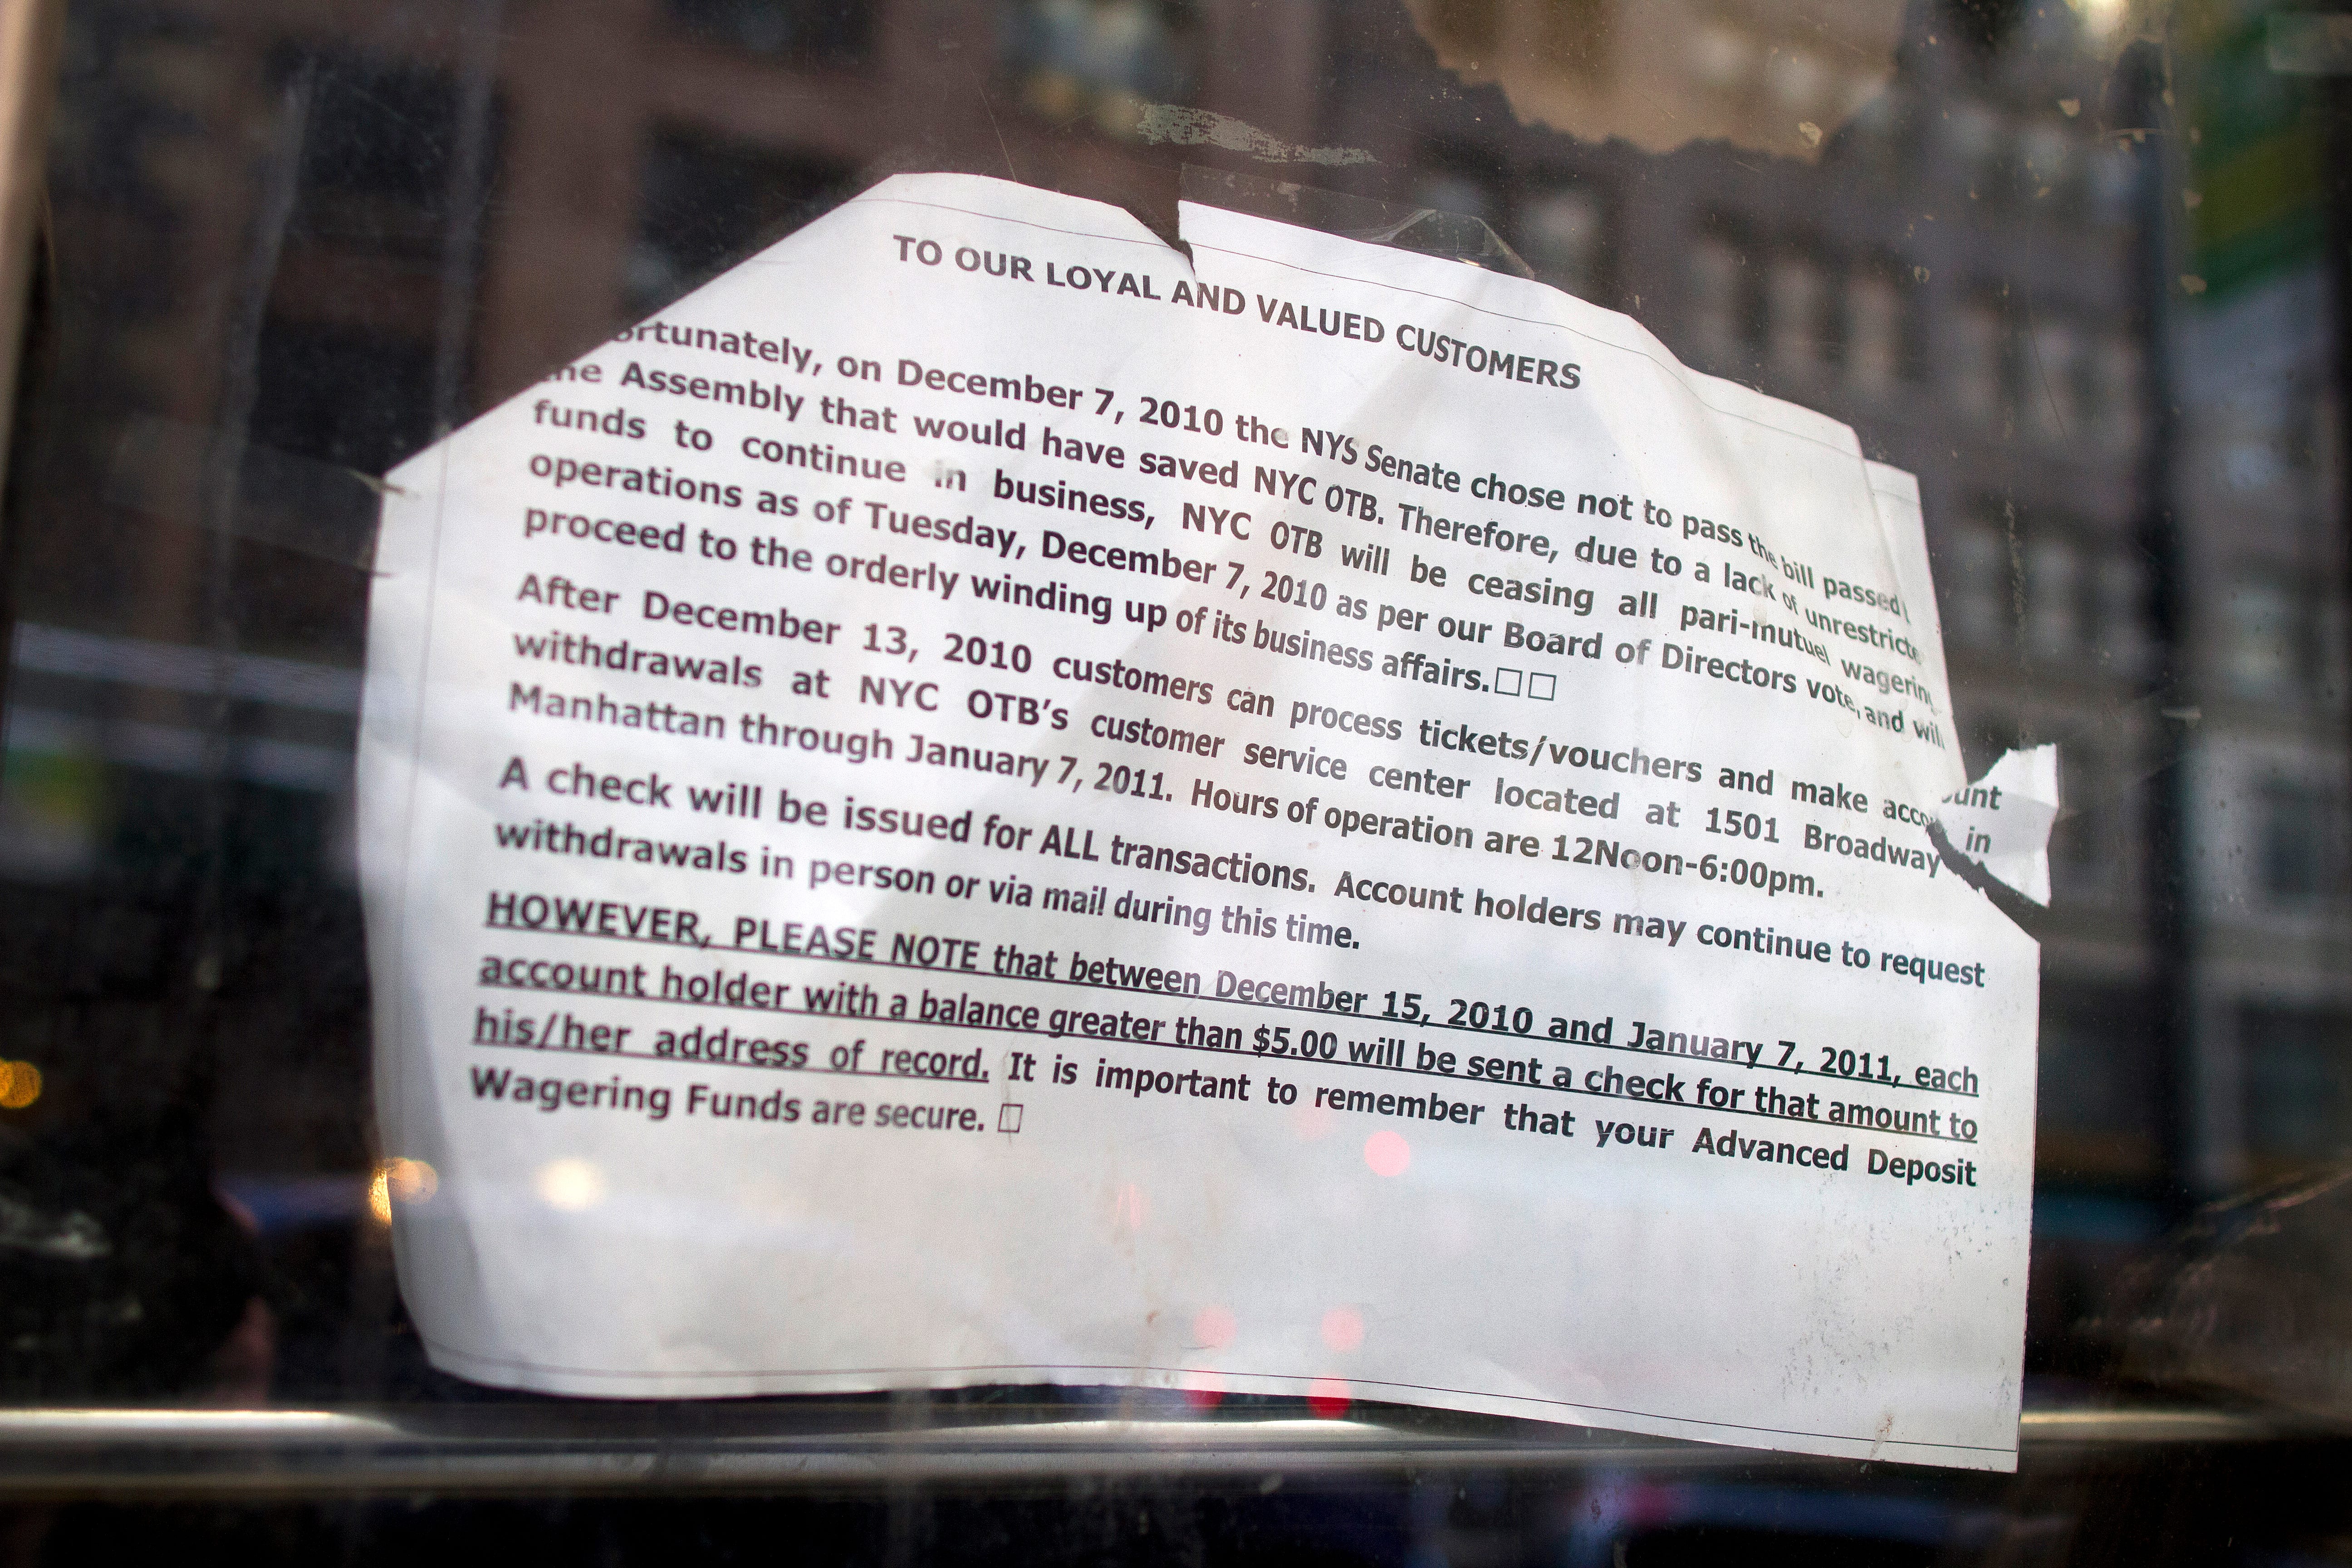 TO OUR LOYAL AND VALUED CUSTOMERS
ortunately, on December 7, 2010 the NYS Senate chose not to pass the bill passed
he Assembly that would have saved NYC OTB. Therefore, due to a lack of unrestricte
funds to continue in business, NYC OTB will be ceasing all pari-mutuel wagering
operations as of Tuesday, December 7, 2010 as per our Board of Directors vote, and will
proceed to the orderly winding up of its business affairs.□□
After December 13, 2010 customers can process tickets/vouchers and make account
withdrawals at NYC OTB's customer service center located at 1501 Broadway in
Manhattan through January 7, 2011. Hours of operation are 12Noon-6:00pm.
A check will be issued for ALL transactions. Account holders may continue to request
withdrawals in person or via mail during this time.
HOWEVER, PLEASE NOTE that between December 15, 2010 and January 7, 2011, each
account holder with a balance greater than $5.00 will be sent a check for that amount to
his/her address of record. It is important to remember that your Advanced Deposit
Wagering Funds are secure. □